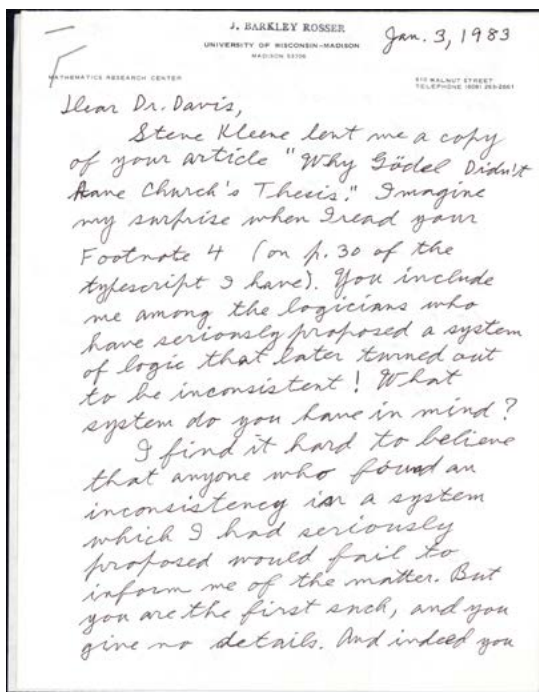 J. BARKLEY ROSSER
UNIVERSITY OF WISCONSIN-MADISON
MADISON 53706
Jan. 3, 1983
MATHEMATICS RESEARCH CENTER
610 WALNUT STREET
TELEPHONE (608) 263-2661
Dear Dr. Davis,
Steve Kleene lent me a copy
of your article "Why Gödel Didn't
Have Church's Thesis." Imagine
my surprise when I read your
Footnote 4 (on p. 30 of the
typescript I have). You include
me among the logicians who
have seriously proposed a system
of logic that later turned out
to be inconsistent! What
system do you have in mind?
I find it hard to believe
that anyone who found an
inconsistency in a system
which I had seriously
proposed would fail to
inform me of the matter. But
you are the first such, and you
give no details. And indeed you